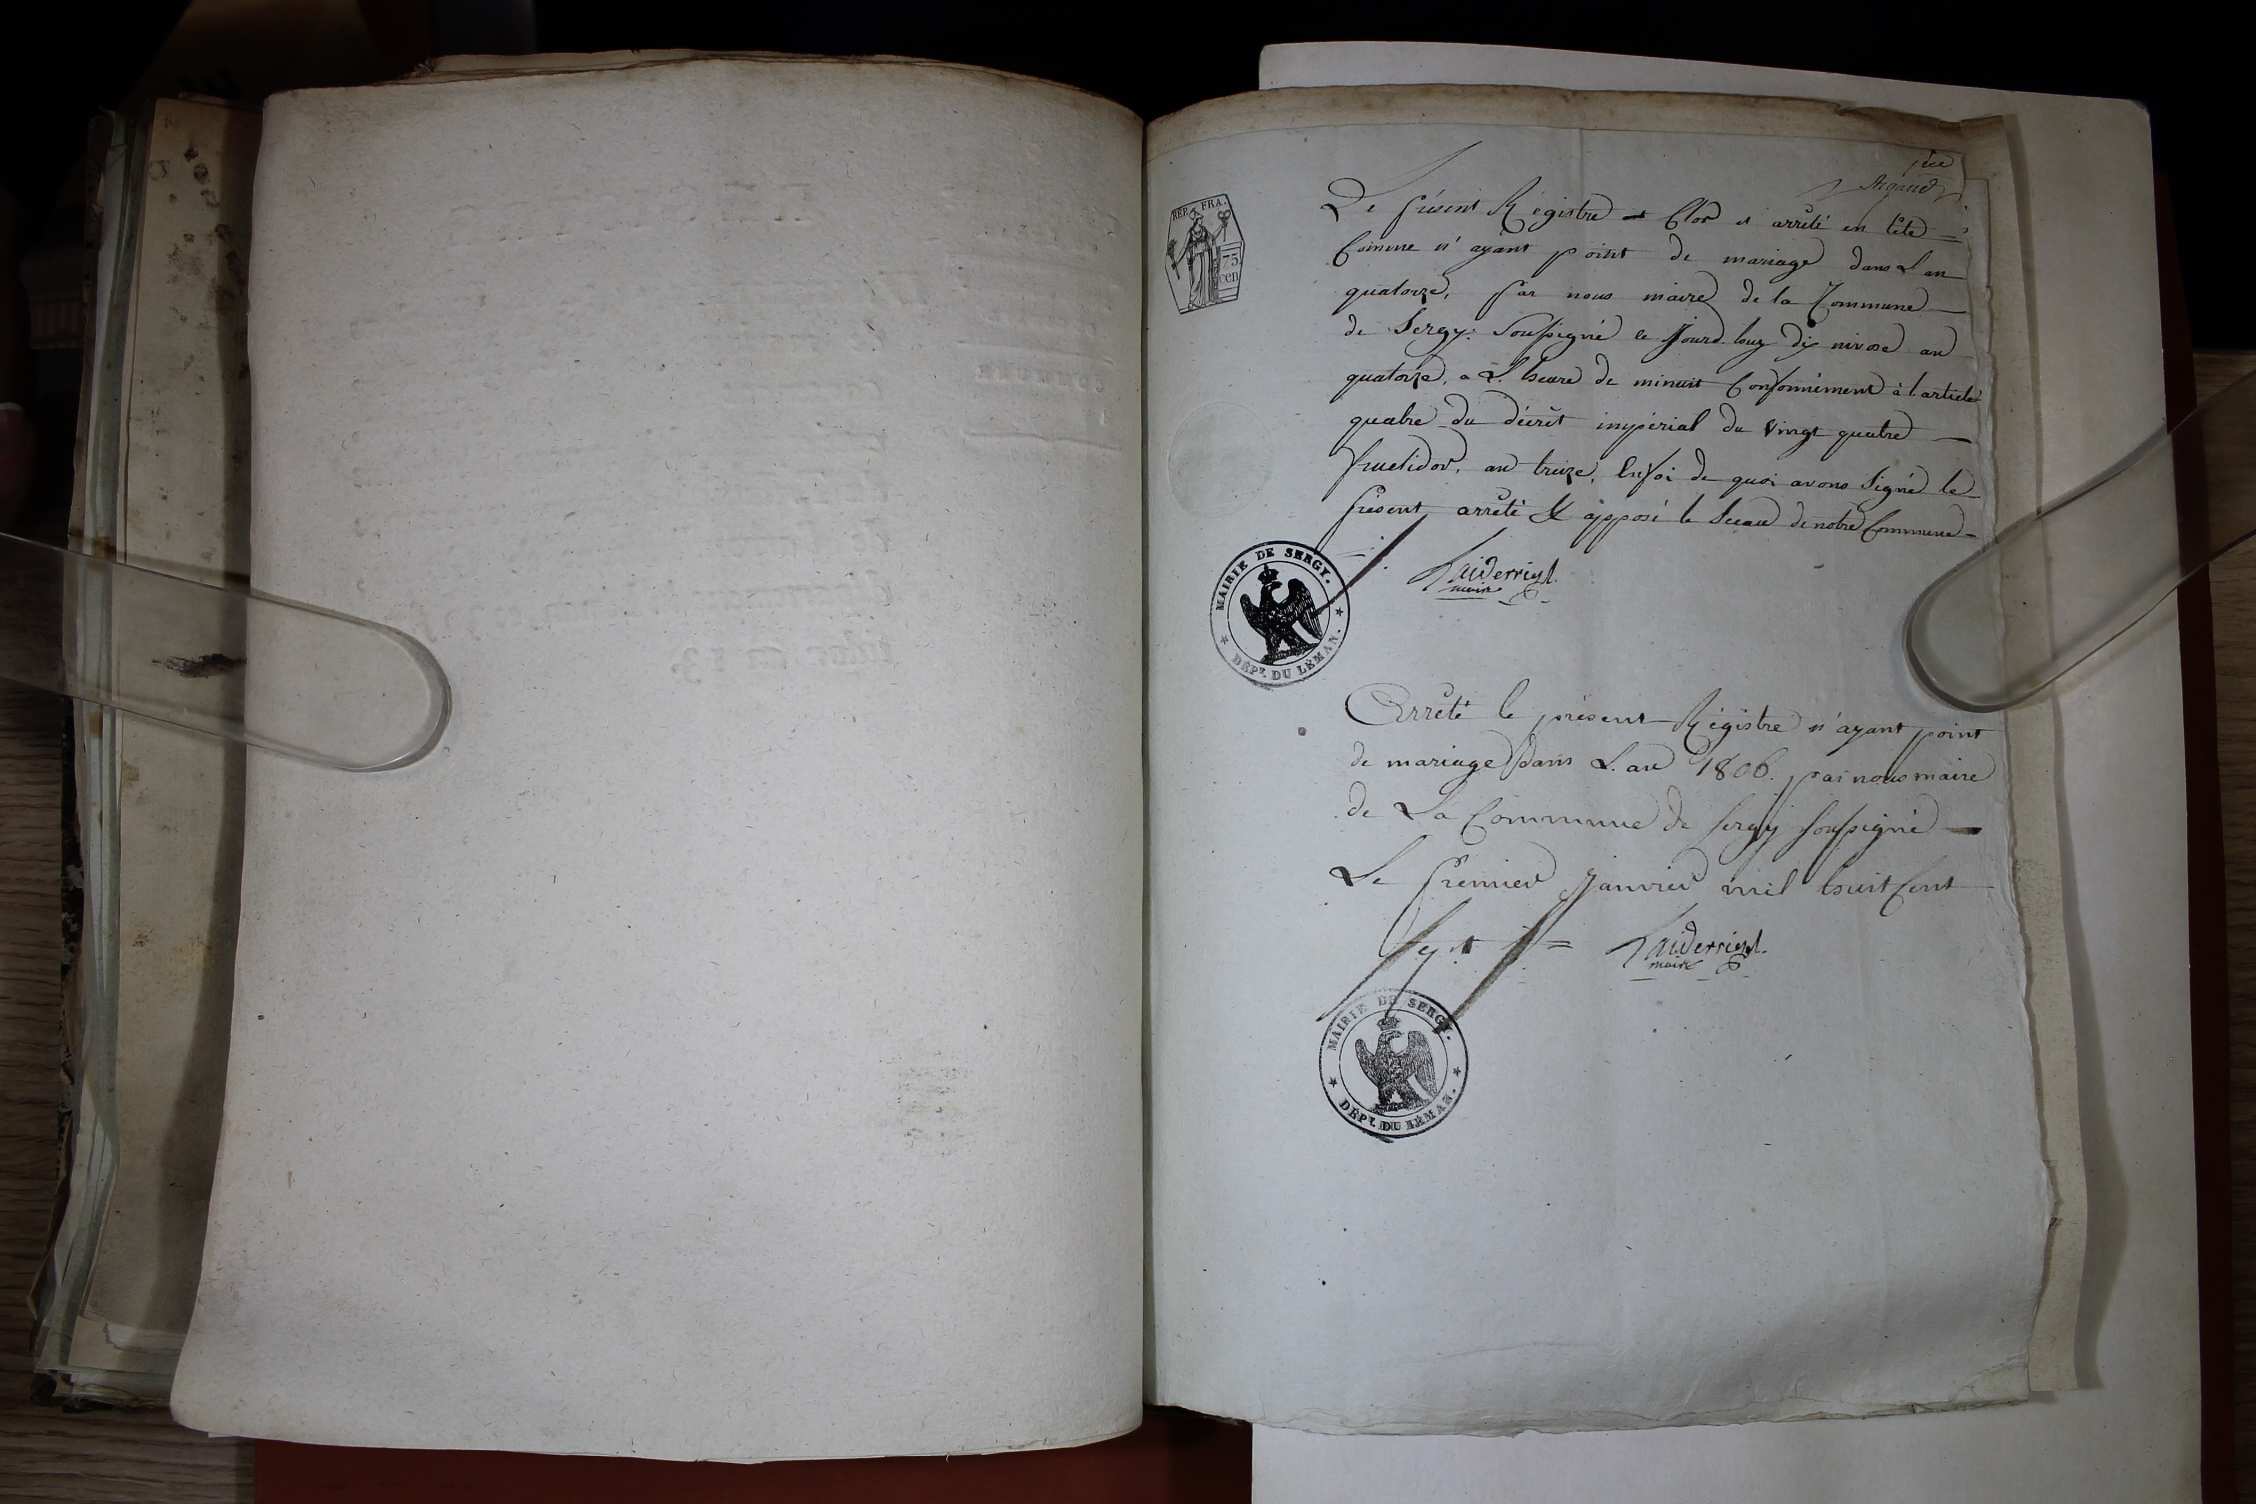 1ère
Argaud
REP. FRA.
75
cen
Le présent Régistre Clos et arrêté en tête
Comme n'ayant point de mariage dans L'an
quatorze, par nous maire de la Commune
de Sergy. Soussigné ce Jourd-huy dix nivose an
quatorze, a L'heure de minuit Conformément à l'article
quatre du décret impérial du Vingt quatre
fructidor, an treize, En foi de quoi avons Signé le
présent arrêté & apposé le Sceau de notre Commune
MAIRIE DE SERGY.
DÉPT. DU LÉMAN.
maire
Arrêté le présent Régistre n'ayant point
de mariage dans L'an 1806. par nous maire
de La Commune de Sergy Soussigné
Le premier Janvier mil huit Cent
Sept
maire
MAIRIE DE SERGY.
DÉPT. DU LÉMAN.